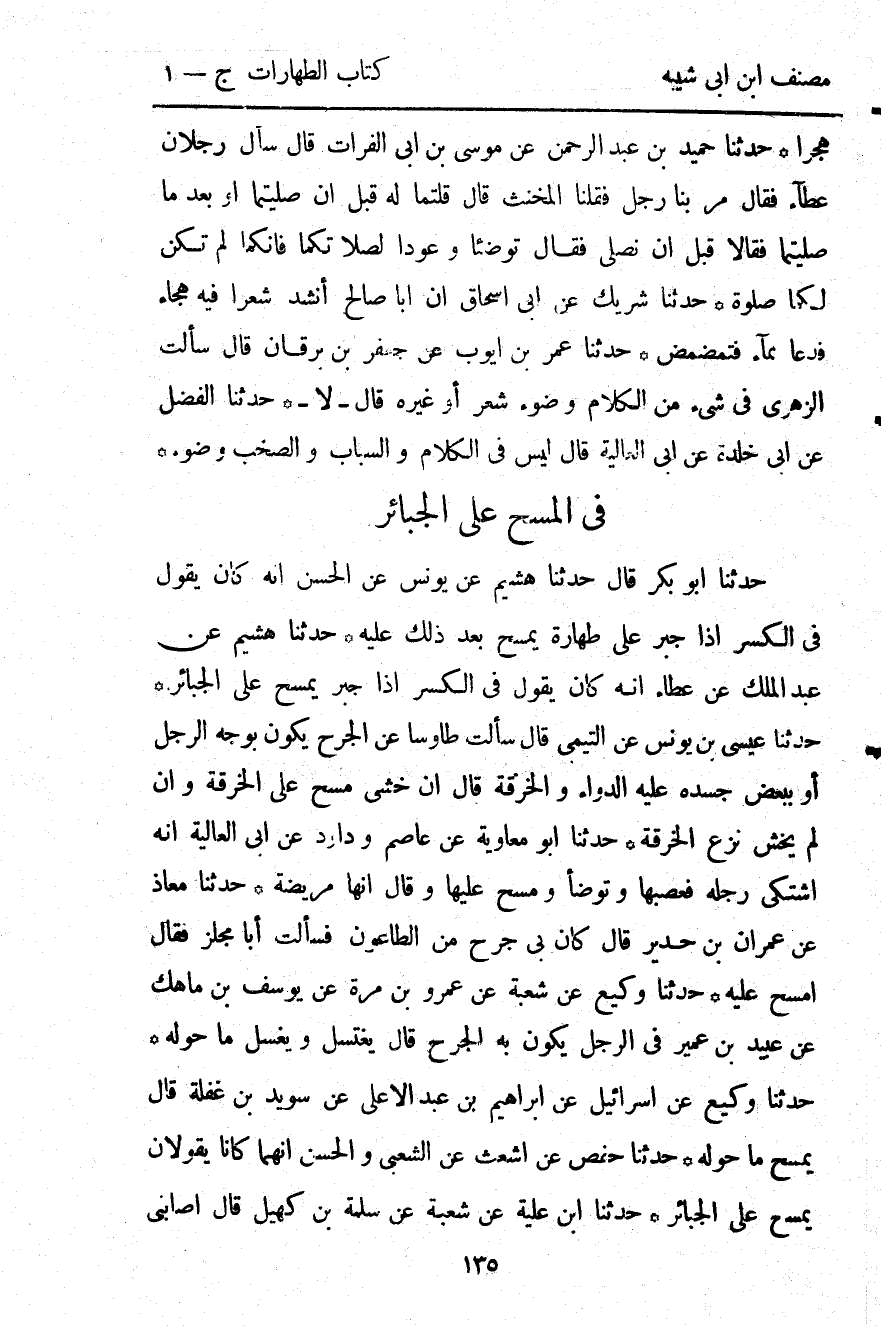 مصنف ابن ابى شيبه كتاب الطهارات ج — ١
هجرا * حدثنا حميد بن عبد الرحمن عن موسى بن ابى الفرات قال سأل رجلان
عطآء فقال مر بنا رجل فقلنا المخنث قال قلتما له قبل ان صليتما او بعد ما
صليتما فقالا قبل ان نصلى فقــال توضئا و عودا لصلا تكما فانكما لم تـكن
لـكما صلوة * حدثنا شريك عن ابى اسحاق ان ابا صالح أنشد شعرا فيه هجاء
فدعا بمآء فتمضمض * حدثنا عمر بن ايوب عن جعفر بن برقــان قال سألت
الزهرى فى شىء من الـكلام وضوء شعر أو غيره قال ـ لا ـ * حدثنا الفضل
عن ابى خلدة عن ابى العالية قال ليس فى الـكلام و السباب و الصخب وضوء *
فى المسح على الجبائر
حدثنا ابو بكر قال حدثنا هشيم عن يونس عن الحسن انه كان يقول
فى الـكسر اذا جبر على طهارة يمسح بعد ذلك عليه * حدثنا هشيم عن
عبد الملك عن عطاء انــه كان يقول فى الـكسر اذا جبر يمسح على الجبائر *
حدثنا عيسى بن يونس عن التيمى قال سألت طاوسا عن الجرح يكون بوجه الرجل
أو ببعض جسده عليه الدواء و الخرقة قال ان خشى مسح على الخرقة و ان
لم يخش نزع الخرقة * حدثنا ابو معاوية عن عاصم و داود عن ابى العالية انه
اشتكى رجله فعصبها و توضأ و مسح عليها و قال انها مريضة * حدثنا معاذ
عن عمران بن حــدير قال كان بى جرح من الطاعون فسألت أبا مجلز فقال
امسح عليه * حدثنا وكيع عن شعبة عن عمرو بن مرة عن يوسف بن ماهك
عن عبيد بن عمير فى الرجل يكون به الجرح قال يغتسل و يغسل ما حوله *
حدثنا وكـيـع عن اسرائيل عن ابراهيم بن عبد الاعلى عن سويد بن غفلة قال
يمسح ما حوله * حدثنا حفص عن اشعث عن الشعبى و الحسن انهما كانا يقولان
يمسح على الجبائر * حدثنا ابن علية عن شعبة عن سلمة بن كهيل قال اصابنى
١٣٥